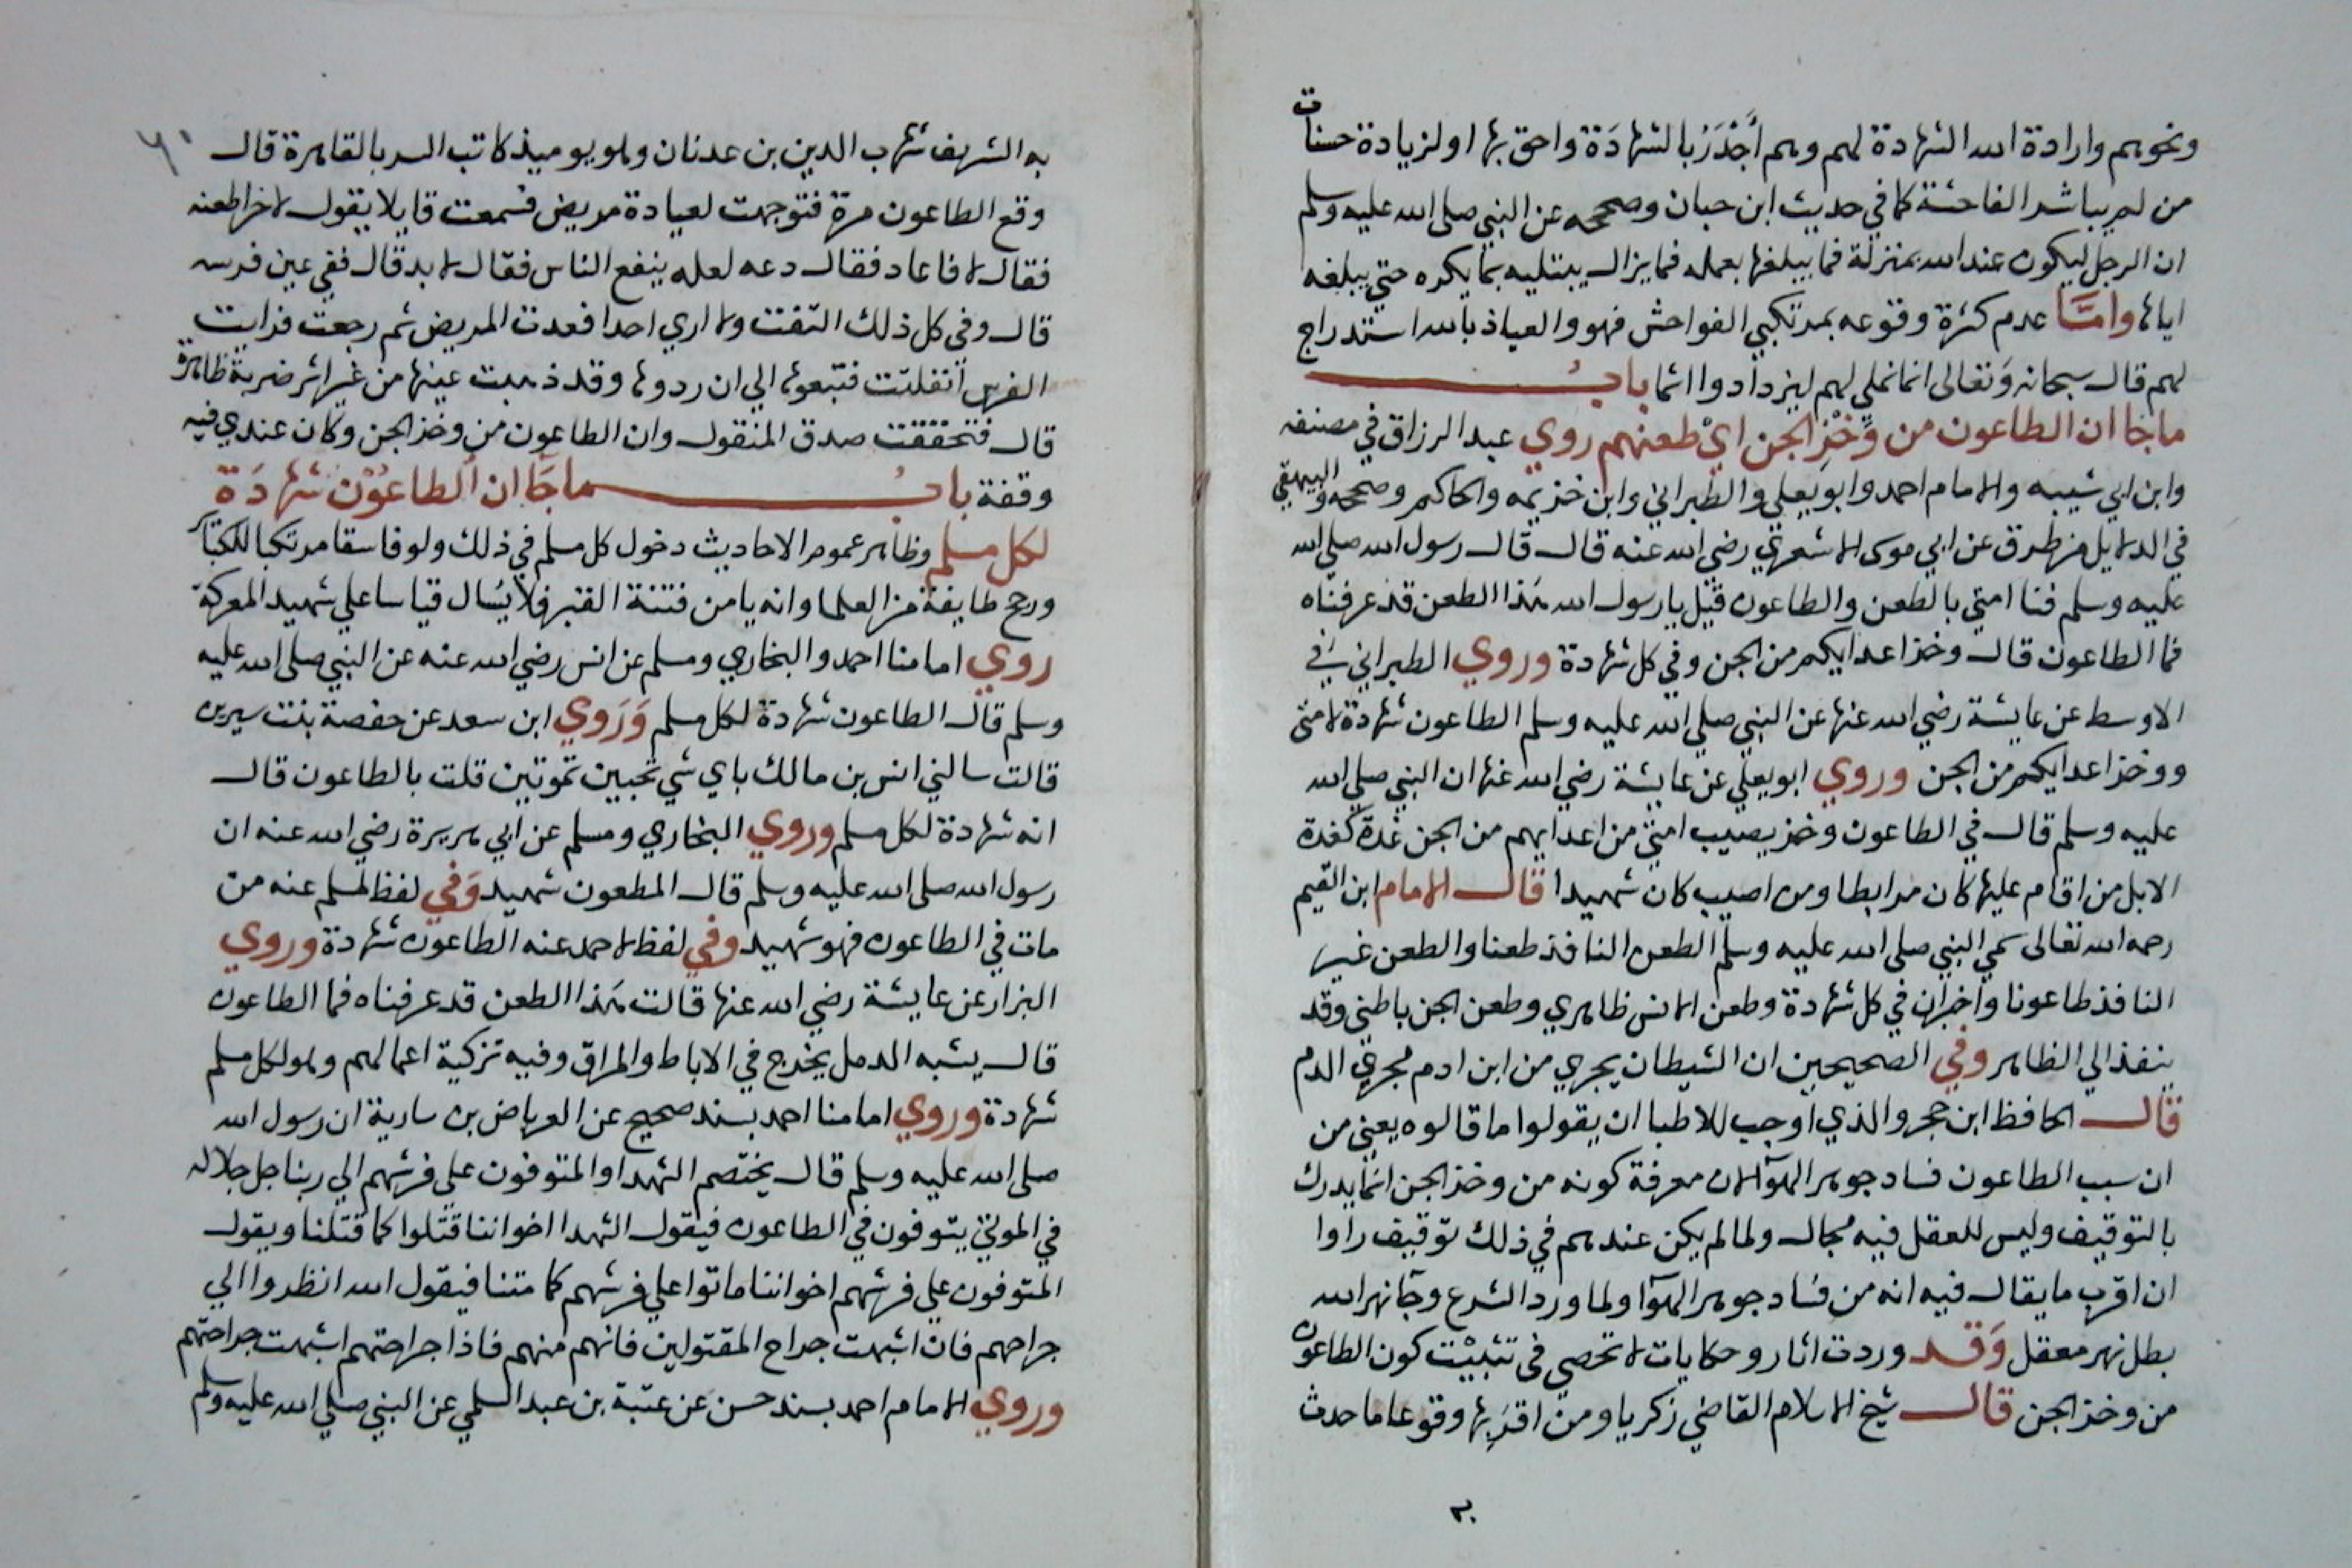 ونحوهم وارادة الله الشهادة لهم وهم أَجْدَرُ بالشهَادَة واحق بها اولزيادة حسنات
من لم يباشر الفاحشة كما في حديث ابن حبان وصححه عن النبي صلى الله عليه وسلم
ان الرجل ليكون عند الله بمنزلة فما يبلغها بعمله فمايزال يبتليه بما يكره حتي يبلغه
اياها وامَّا عدم كثرة وقوعه بمرتكبي الفواحش فهو والعياذ بالله استدراج
لهم قال سبحانه وَتعالى انما نملي لهم ليزدادوا اثما بابُ
ماجا ان الطاعون من وَخْزِ الجن ايْ طعنهم روي عبد الرزاق في مصنفه
وابن ابي شيبه والامام احمد وابو يعلي والطبراني وابن خزيمه والحاكم وصححه والبيهقي
في الدلايل من طرق عن ابي موسى الاشعري رضي الله عنه قال قال رسول الله صلي الله
عليه وسلم فنا امتي بالطعن والطاعون قيل يا رسول الله هذا الطعن قد عرفناه
فما الطاعون قال وخز اعدايكم من الجن وفي كل شهادة وروي الطبراني في
الاوسط عن عايشة رضي الله عنها عن النبي صلي الله عليه وسلم الطاعون شهادة لامتي
ووخز اعدايكم من الجن وروي ابو يعلي عن عايشة رضي الله عنها ان النبي صلي الله
عليه وسلم قال في الطاعون وخز يصيب امتي من اعدايهم من الجن غدة كغدة
الابل من اقام عليها كان مرابطا ومن اصيب كان شهيدا قال الامام ابن القيم
رحمه الله تعالى سمي النبي صلى الله عليه وسلم الطعن النافذ طعنا والطعن غير
النافذ طاعونا واخبران في كل شهادة وطعن الانس ظاهري وطعن الجن باطني وقد
ينفذ الي الظاهر وفي الصحيحين ان الشيطان يجري من ابن ادم مجري الدم
قال الحافظ ابن حجر والذي اوجب للاطبا ان يقولوا ما قالوه يعني من
ان سبب الطاعون فساد جوهر الهوآ لان معرفة كونه من وخز الجن انما يدرك
بالتوقيف وليس للعقل فيه مجال ولما لم يكن عندهم في ذلك توقيف راوا
ان اقرب ما يقال فيه انه من فساد جوهر الهوآ ولما ورد الشرع وجآ نهر الله
بطل نهر معقل وَقد وردت اثار وحكايات لا تحصي في تثبيْت كون الطاعون
من وخز الجن قال شيخ الاسلام القاضي زكريا ومن اقربها وقوعا ما حدث
٢
٦١
به الشريف شهاب الدين بن عدنان وهو يوميذ كاتب السر بالقاهرة قال
وقع الطاعون مرة فتوجهت لعيادة مريض فسمعت قايلا يقول لاخر اطعنه
فقال لا فاعاد فقال دعه لعله ينفع الناس فقال لا بد قال ففي عين فرسه
قال وفي كل ذلك التفت ولا اري احدا فعدت المريض ثم رجعت فرايت
الفرس انفلتت فتبعوها الي ان ردوها وقد ذهبت عينها من غير اثر ضربة ظاهرة
قال فتحققت صدق المنقول وان الطاعون من وخز الجن وكان عندي فيه
وقفة بابُ ماجَا ان الطاعُوْن شهادَة
لكل مسلم وظاهر عموم الاحاديث دخول كل مسلم في ذلك ولو فاسقا مرتكبا للكبائر
ورجح طايفة من العلما وانه يامن فتنة القبر فلا يسال قياسا علي شهيد المعركة
روي امامنا احمد والبخاري ومسلم عن انس رضي الله عنه عن النبي صلى الله عليه
وسلم قال الطاعون شهادة لكل مسلم وَرَوي ابن سعد عن حفصة بنت سيرين
قالت سالني انس بن مالك باي شي تحبين تموتين قلت بالطاعون قال
انه شهادة لكل مسلم وروي البخاري ومسلم عن ابي هريرة رضي الله عنه ان
رسول الله صلى الله عليه وسلم قال المطعون شهيد وَفي لفظ لمسلم عنه من
مات في الطاعون فهو شهيد وفي لفظ لاحمد عنه الطاعون شهادة وروي
البزار عن عايشة رضي الله عنها قالت هذا الطعن قد عرفناه فما الطاعون
قال يشبه الدمل يخرج في الاباط والمراق وفيه تزكية اعمالهم وهو لكل مسلم
شهادة وروي امامنا احمد بسند صحيح عن العرباض بن سارية ان رسول الله
صلى الله عليه وسلم قال يختصم الشهدا والمتوفون علي فرشهم الي ربنا جل جلاله
في الموتي يتوفون في الطاعون فيقول الشهدا اخواننا قتلوا كما قتلنا ويقول
المتوفون علي فرشهم اخواننا ماتوا علي فرشهم كما متنا فيقول الله انظروا الي
جراحهم فان اشبهت جراح المقتولين فانهم منهم فاذا جراحتهم اشبهت جراحتهم
وروي الامام احمد بسند حسن عن عتبة بن عبد السلمي عن النبي صلي الله عليه وسلم